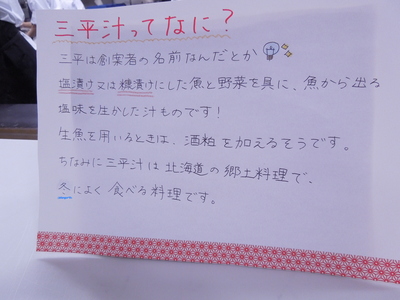 三平汁ってなに？
三平は創案者の名前なんだとか
塩漬け又は糠漬けにした魚と野菜を具に、魚から出る
塩味を生かした汁ものです！
生魚を用いるときは、酒粕を加えるそうです。
ちなみに三平汁は北海道の郷土料理で、
冬によく食べる料理です。